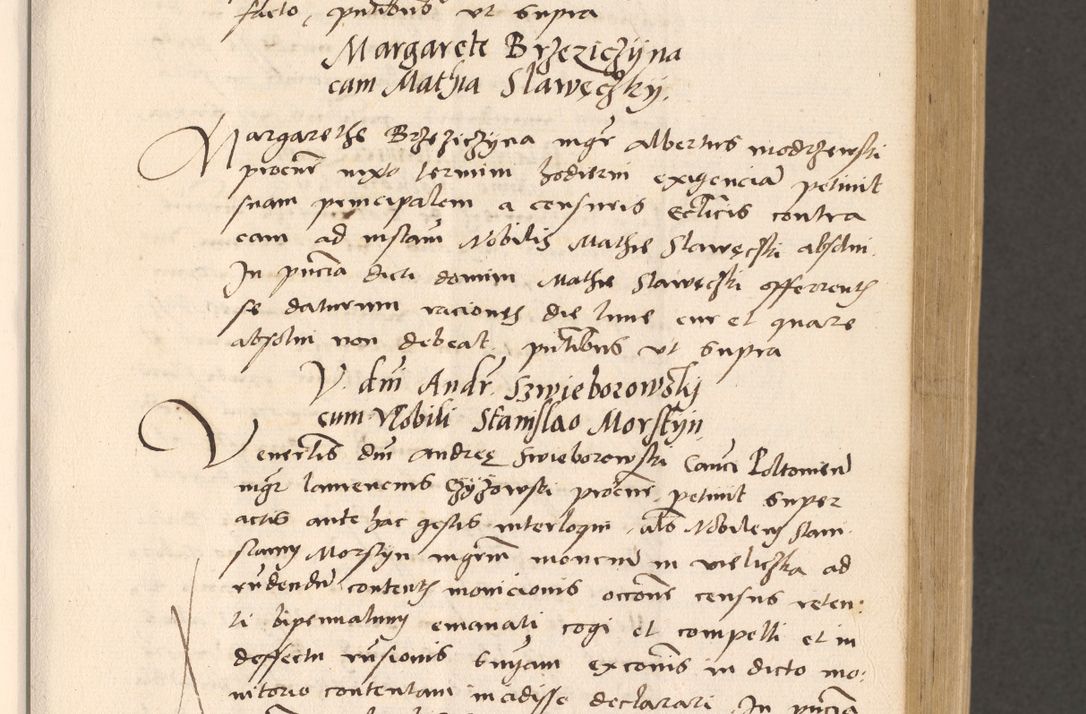 facto, pntibus vt supra
Margarete Brzeziczÿna
cum Mathia Slawęczkÿ.
Margarethe Brzeziczyna mgr Albertus modrzewski
procur iuxta termini hodierni exigencia petiuit
suam principalem a censuris Ecclicis contra
eam ad instam Nobilis Mathie Slawęcski absolui.
In pncia dicti domini Mathie Slawęczki offerrentis
se daturum raciones die lune cur et quare
absolui non debeat. pntibus vt supra
V. dni Andr Szwieborowskÿ
cum Nobili Stanislao Morstÿn
Venerlis dni Andreę Swieborowski Canci Poltouien
mgr laurencius Czÿżowski procur petiuit super
actis ante hac gestis interloqui, als Nobilem Stani
slaum Morstyn ingrum moneni in vieliczka ad
rudendu contentis monicionis occone census reten:
ti bipennalium emanati cogi et compelli et in
deffectu rusionis sniam exconis in dicto mo:
nitorio contentam incidisse declarari. In pncia